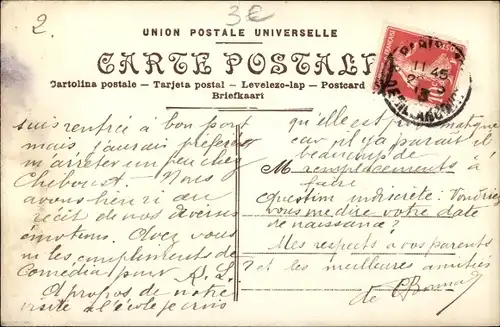 2.
3€
UNION POSTALE UNIVERSELLE
CARTE POSTALE
Cartolina postale — Tarjeta postal — Levelezo-lap — Postcard
Briefkaart
suis rentrée à bon port
mais j'aurais préféré
m'arrêter un peu chez
Nous
avons bien ri du
récit de vos diverses
émotions. Avez vous
lu les compliments de
Comedia pour R. L.
A propos de notre
visite à l'école je crois
qu'elle est
car il y a paraît il
beaucoup de
M remplacements à
faire
question indiscrète : Voudriez
vous me dire votre date
de naissance?
Mes respects à vos parents
et les meilleures amitiés
de